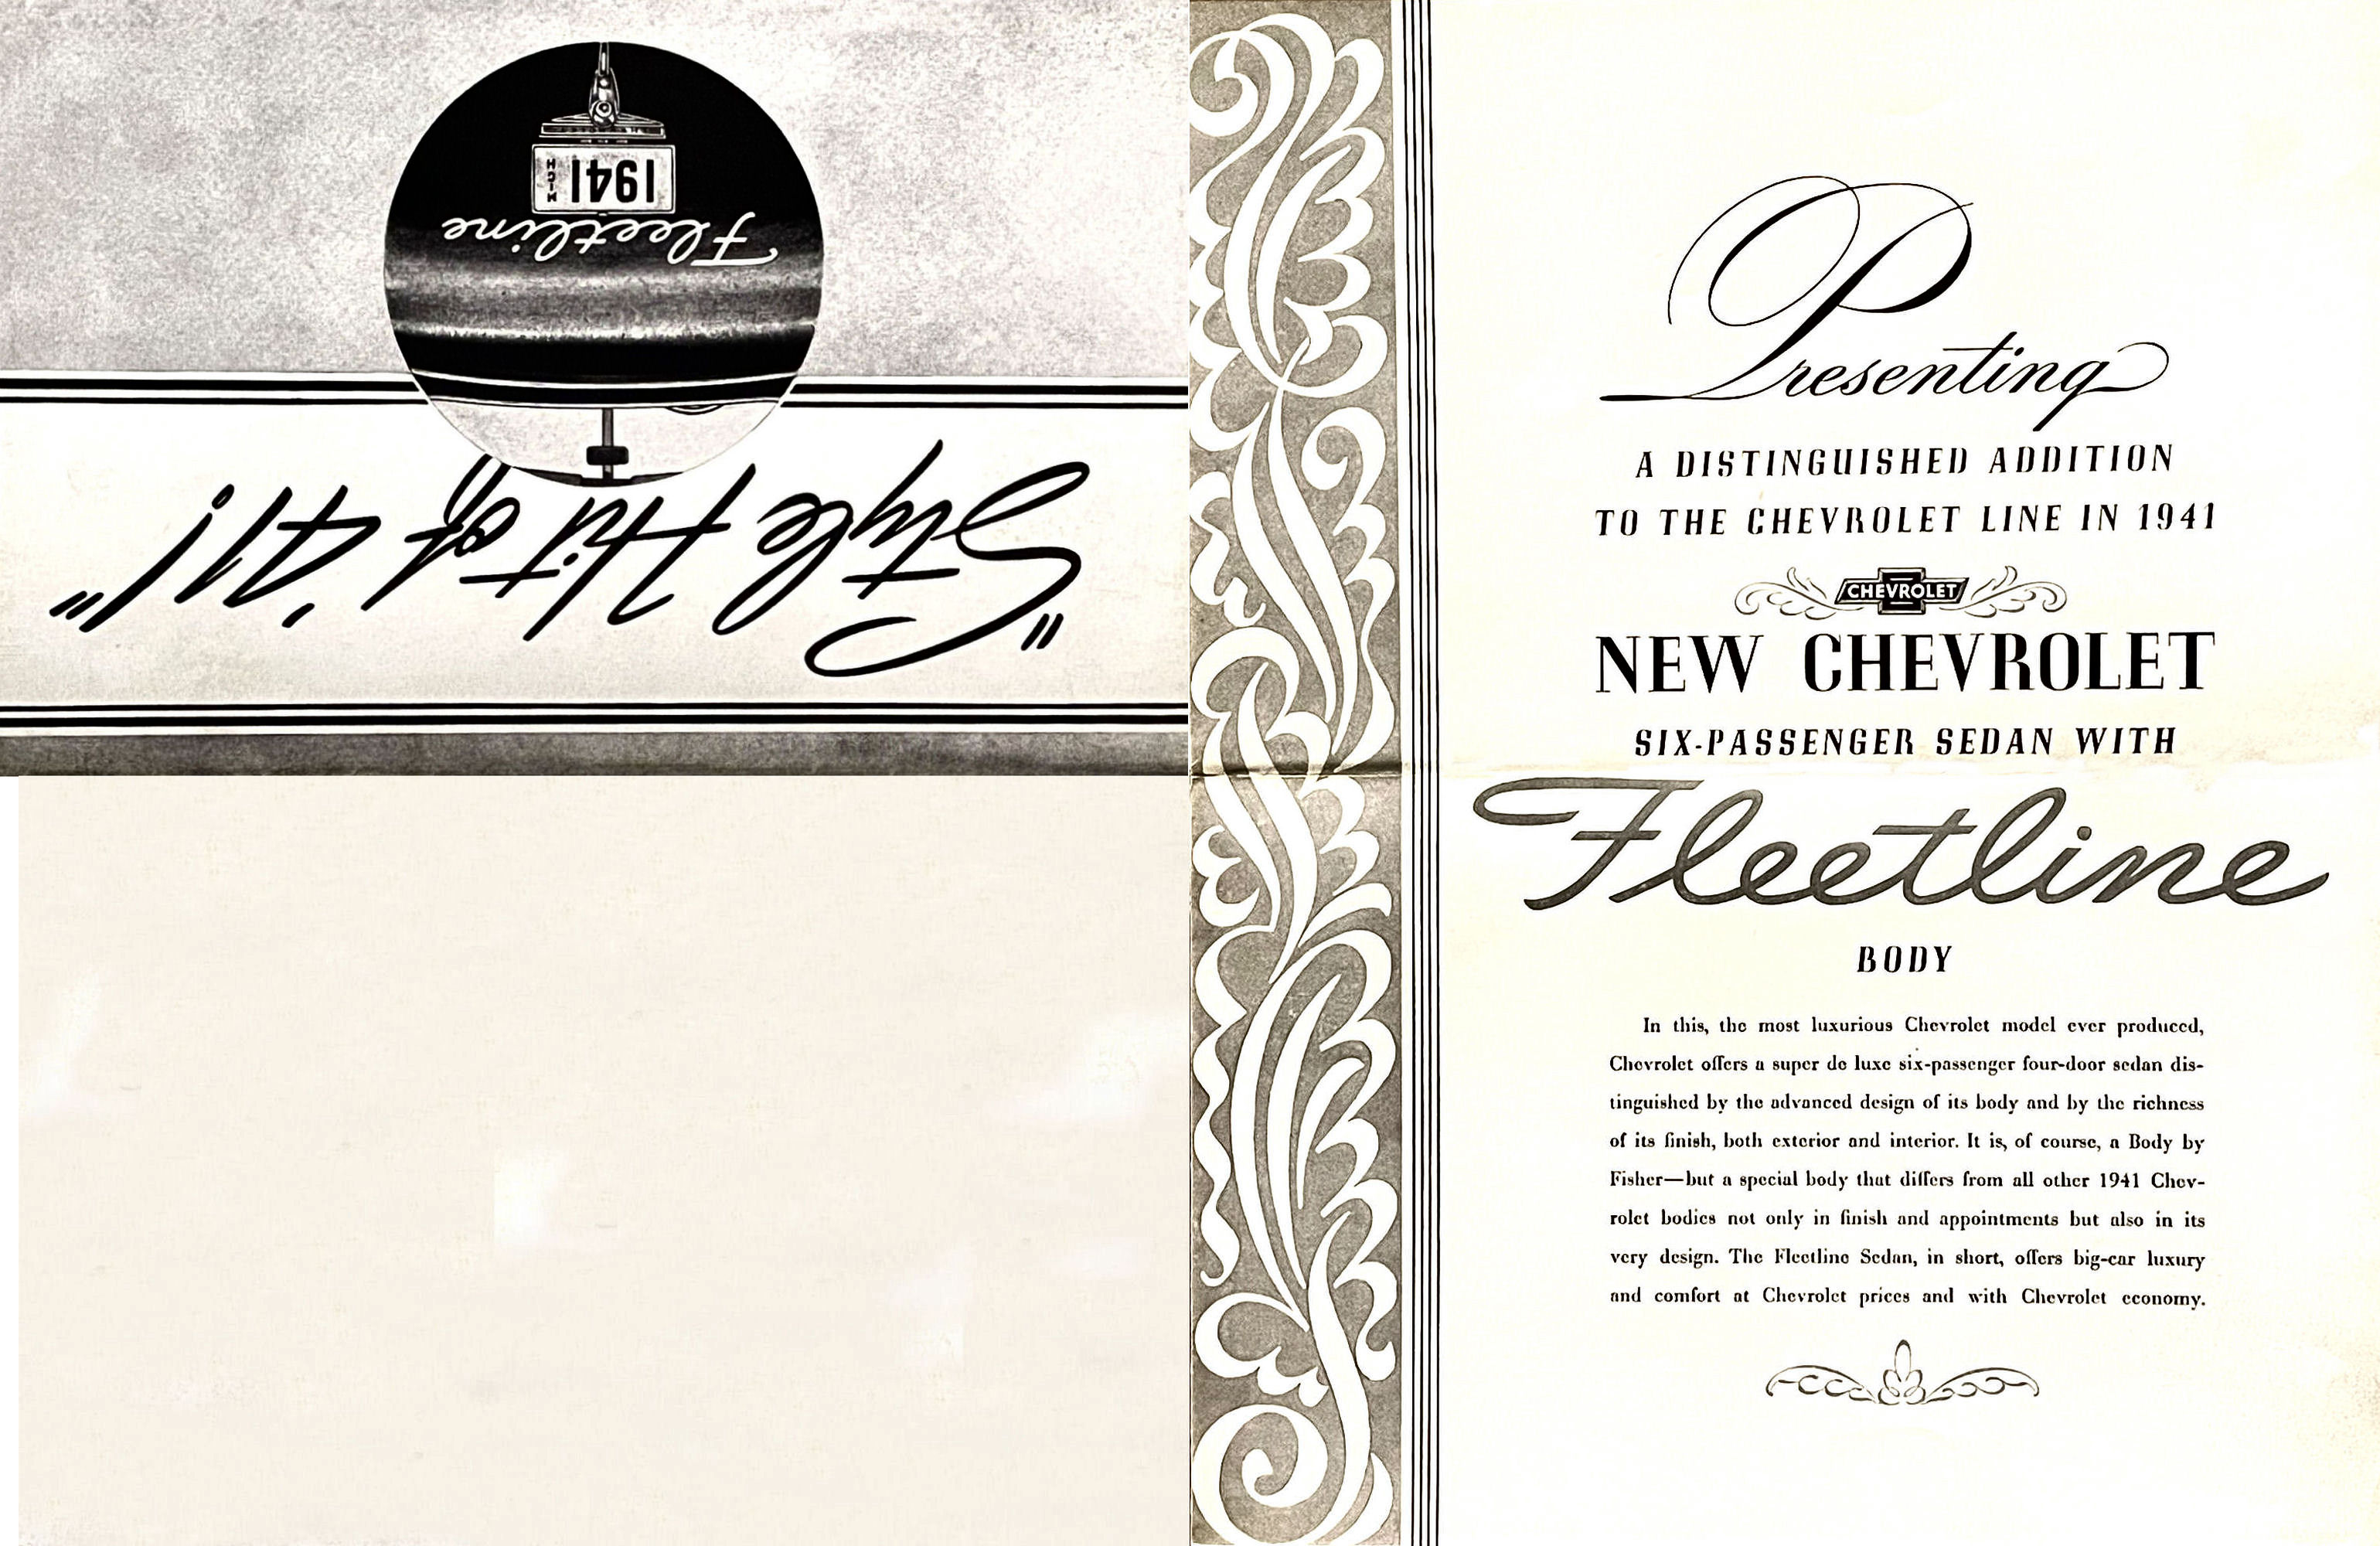 "Style Hit of '41!"
Fleetline
1941
MICH
Presenting
A DISTINGUISHED ADDITION
TO THE CHEVROLET LINE IN 1941
CHEVROLET
NEW CHEVROLET
SIX-PASSENGER SEDAN WITH
Fleetline
BODY
In this, the most luxurious Chevrolet model ever produced,
Chevrolet offers a super de luxe six-passenger four-door sedan dis-
tinguished by the advanced design of its body and by the richness
of its finish, both exterior and interior. It is, of course, a Body by
Fisher—but a special body that differs from all other 1941 Chev-
rolet bodies not only in finish and appointments but also in its
very design. The Fleetline Sedan, in short, offers big-car luxury
and comfort at Chevrolet prices and with Chevrolet economy.